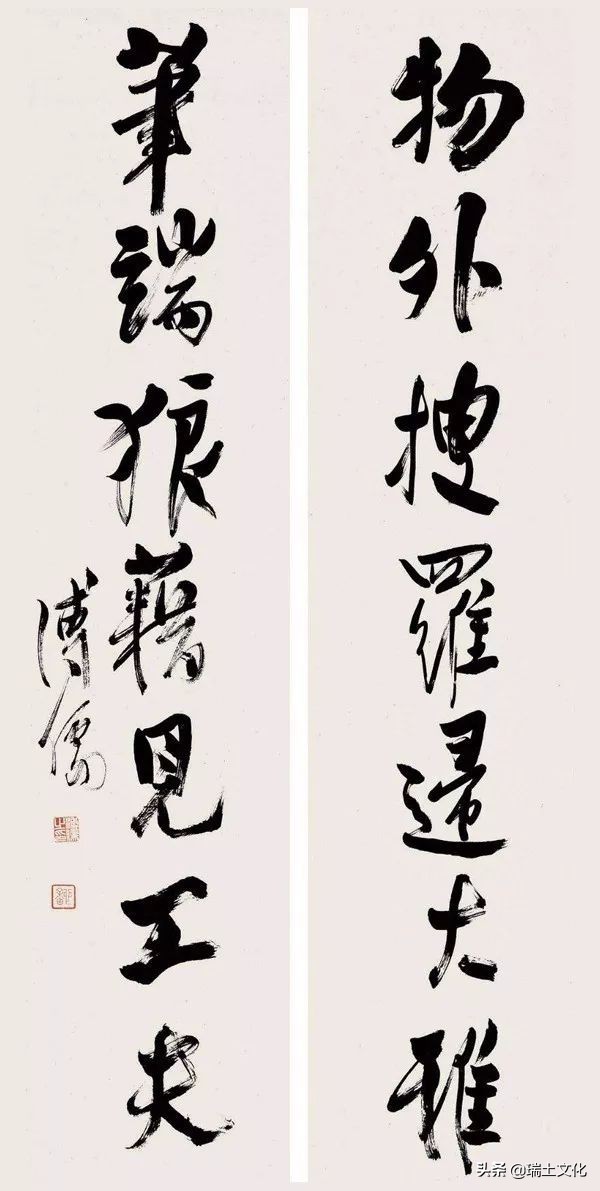 物外搜羅歸大雅
筆端狼藉見工夫
溥儒
头条 @瑞土文化